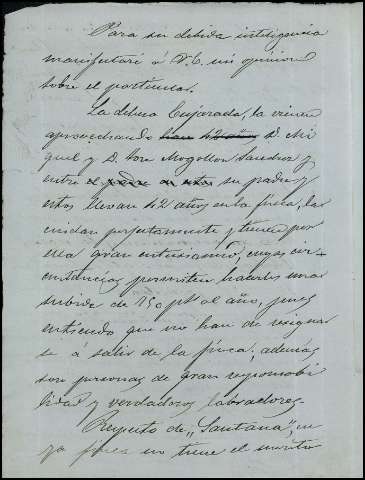 Para su debida inteligencia
manifestaré á V.E. mi opinion
sobre el particular.
La dehesa Enjarada, la vienen
aprovechando han 42 años D. Mi
guel y D. José Mogollon Sanchez y
entre el padre de estos su padre y
estos llevan 42 años en la finca, la
cuidan perfectamente y tienen por
ella gran entusiasmo, cuyas cir-
cunstancias permiten hacerles una
subida de 750 pts al año, pues
entiendo que no han de resignar
se á salir de la finca, además
son personas de gran responsabi
lidad y verdaderos labradores.
Respecto de "Santana", cu
ya finca no tiene el mérito